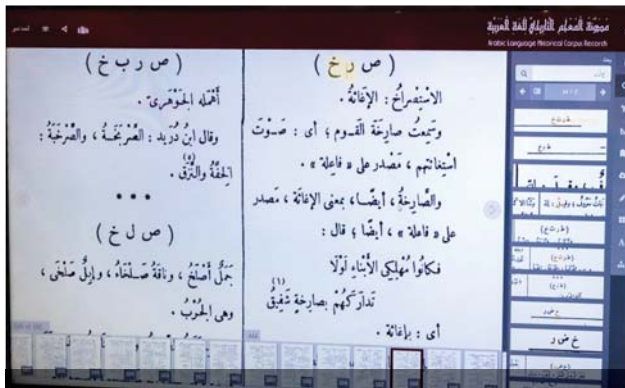 مدونة المعجم التاريخي للغة العربية
Arabic Language Historical Corpus Records
( ص ر خ )
الاسْتِصْراخُ : الإغاثَةُ .
وسَمِعتُ صارِخَةَ القَـومِ ؛ أى : صَـوْتَ
اسْتِغاثَتِهم ، مَصْدر على « فاعلة » .
والصَّارِخَةُ ، أيضًـا ، بمعنى الإغاثَة ، مَصدر
على « فاعلة » ، أيضًا ؛ قال :
فكانُوا مُهْلِكِى الأَبْناءِ لَوْلَا
تَدارَكَهُمْ بصارِخةٍ شَفِيقُ (١)
أى : بإغاثَة .
( ص ر ب خ )
أهْمله الجَوْهَرىّ .
وقال ابنُ دُرَيد : الصَّرْبَخَـةُ ، والصَّرْخَبَةُ :
الِخفَّةُ والنَّزَقُ .
* * *
( ص ل خ )
جَمَلٌ أَصْلَخُ ، وناقَةٌ صَـلْخَاءُ ، وإبِلٌ صَلْخَى ،
وهى الجُرْبُ .
خ ض ر